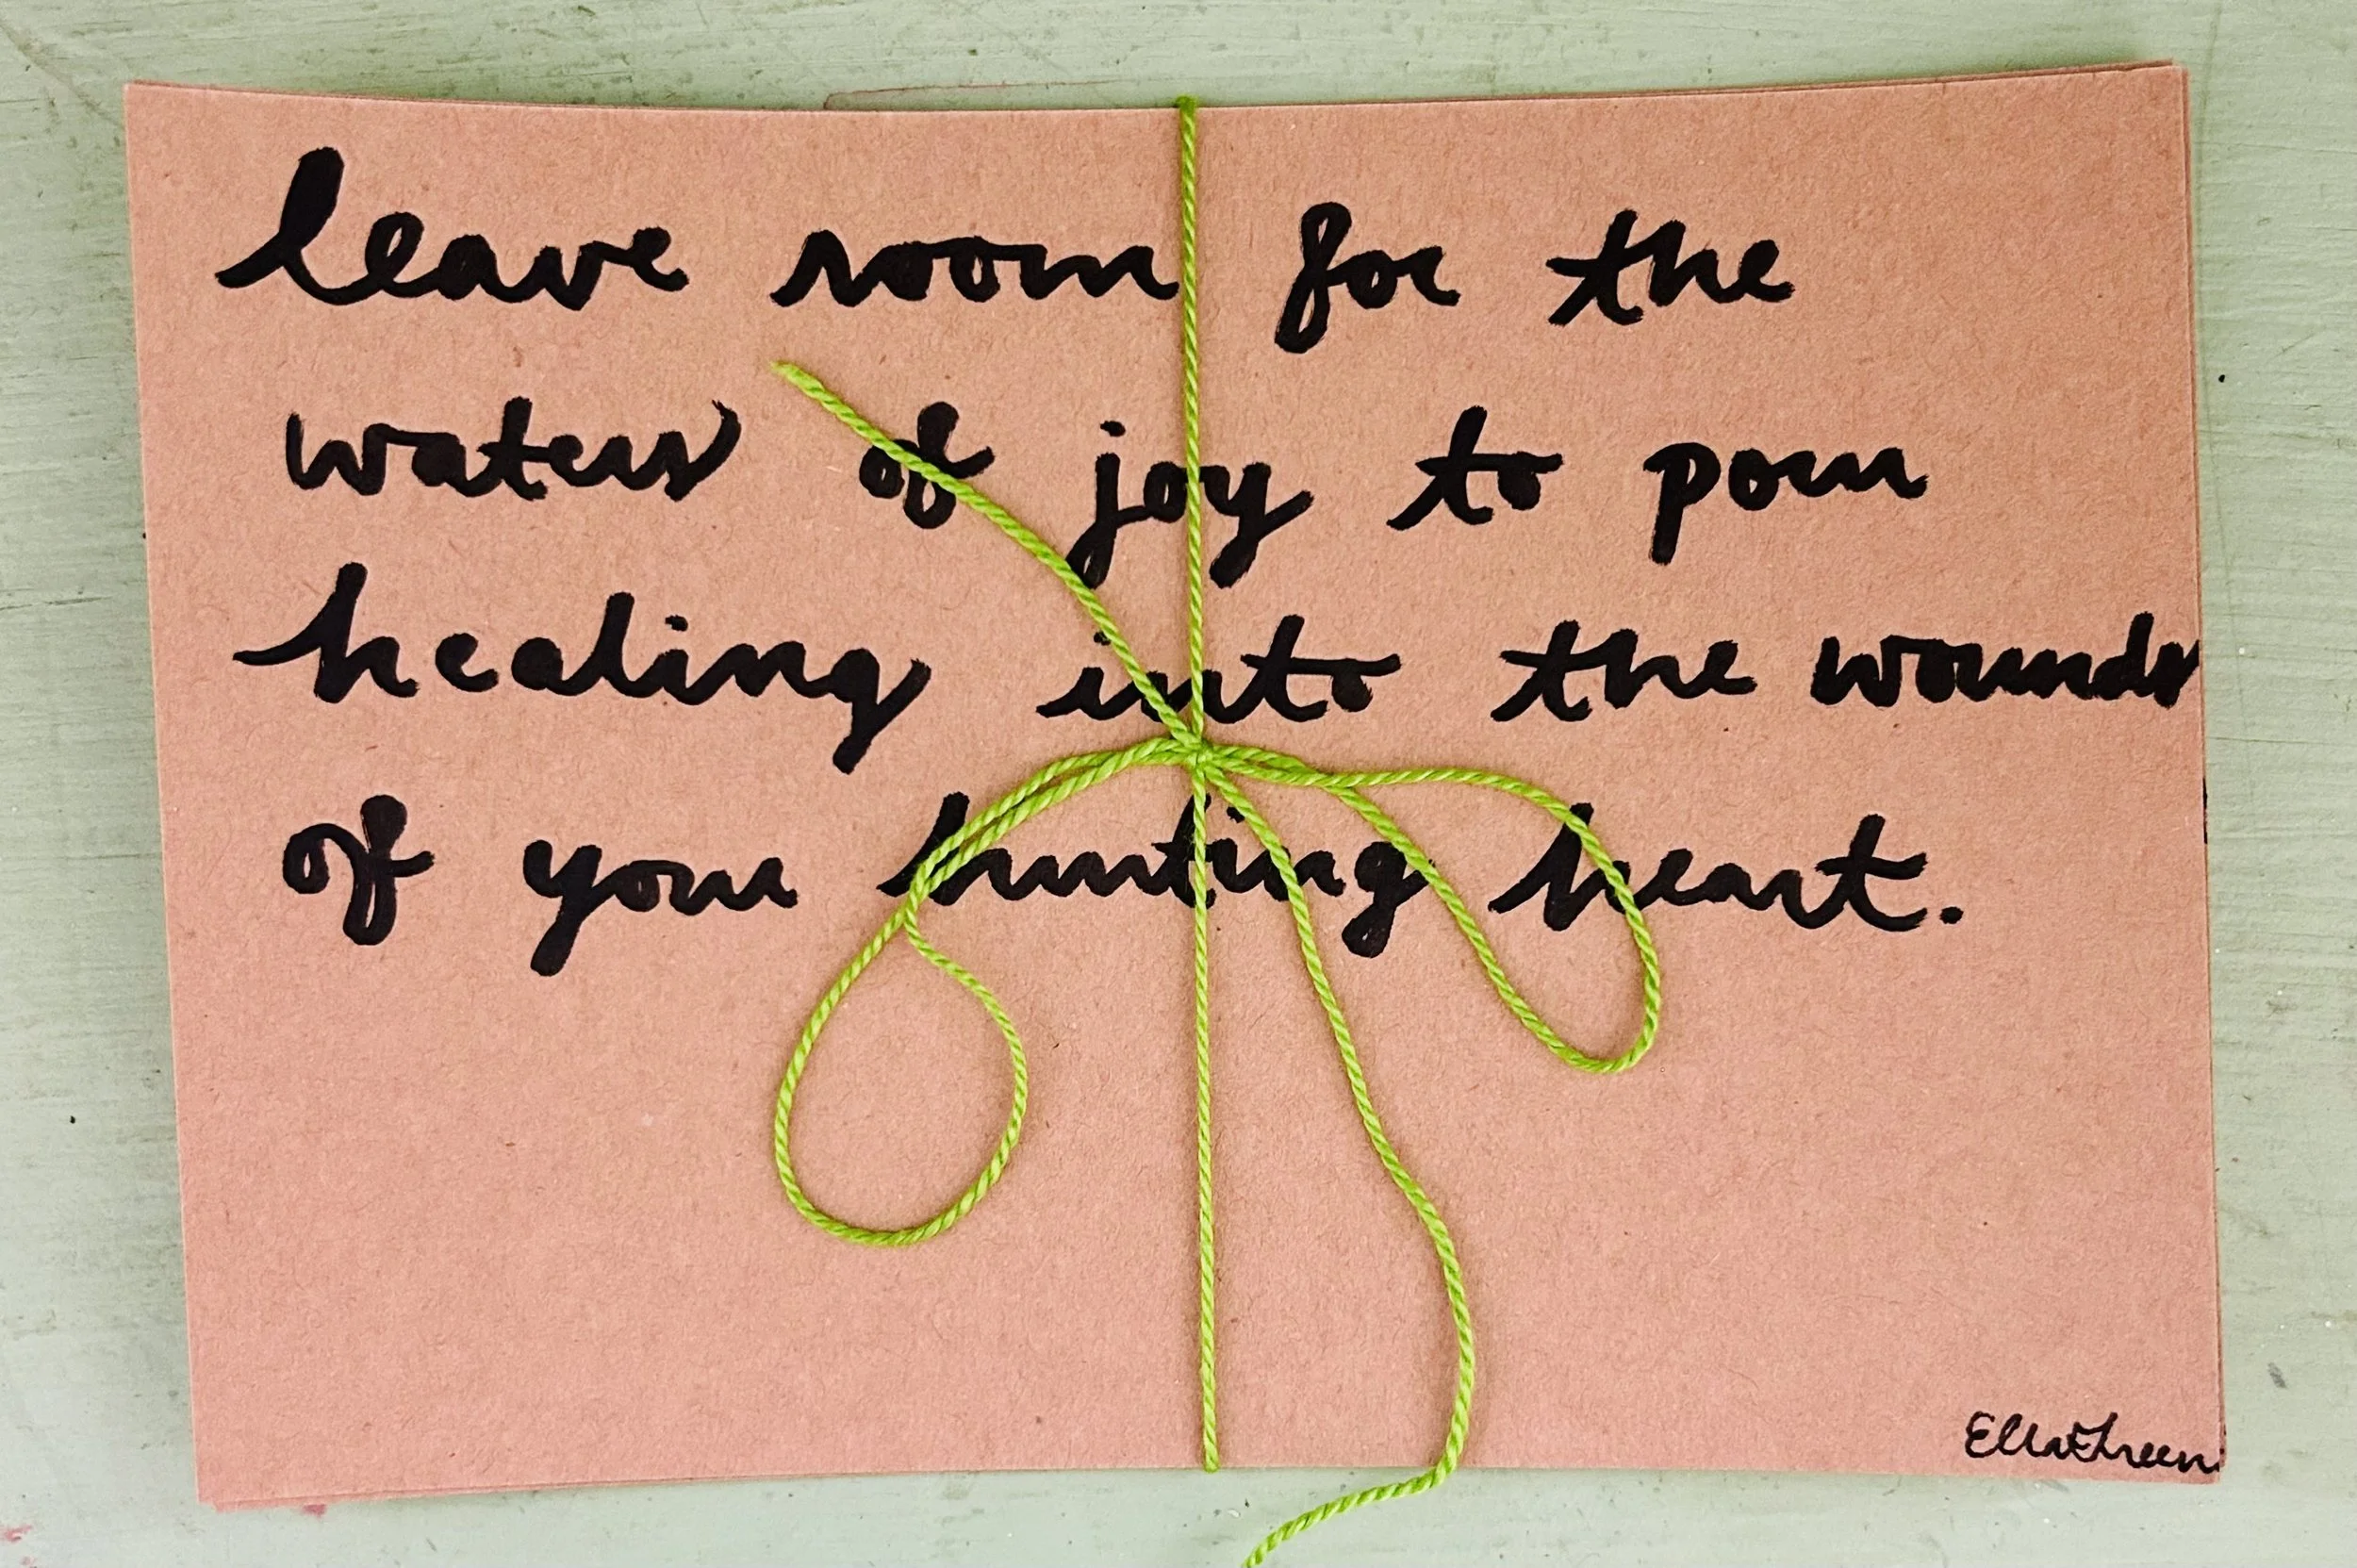 leave room for the
waters of joy to pour
healing into the wounds
of your hurting heart.